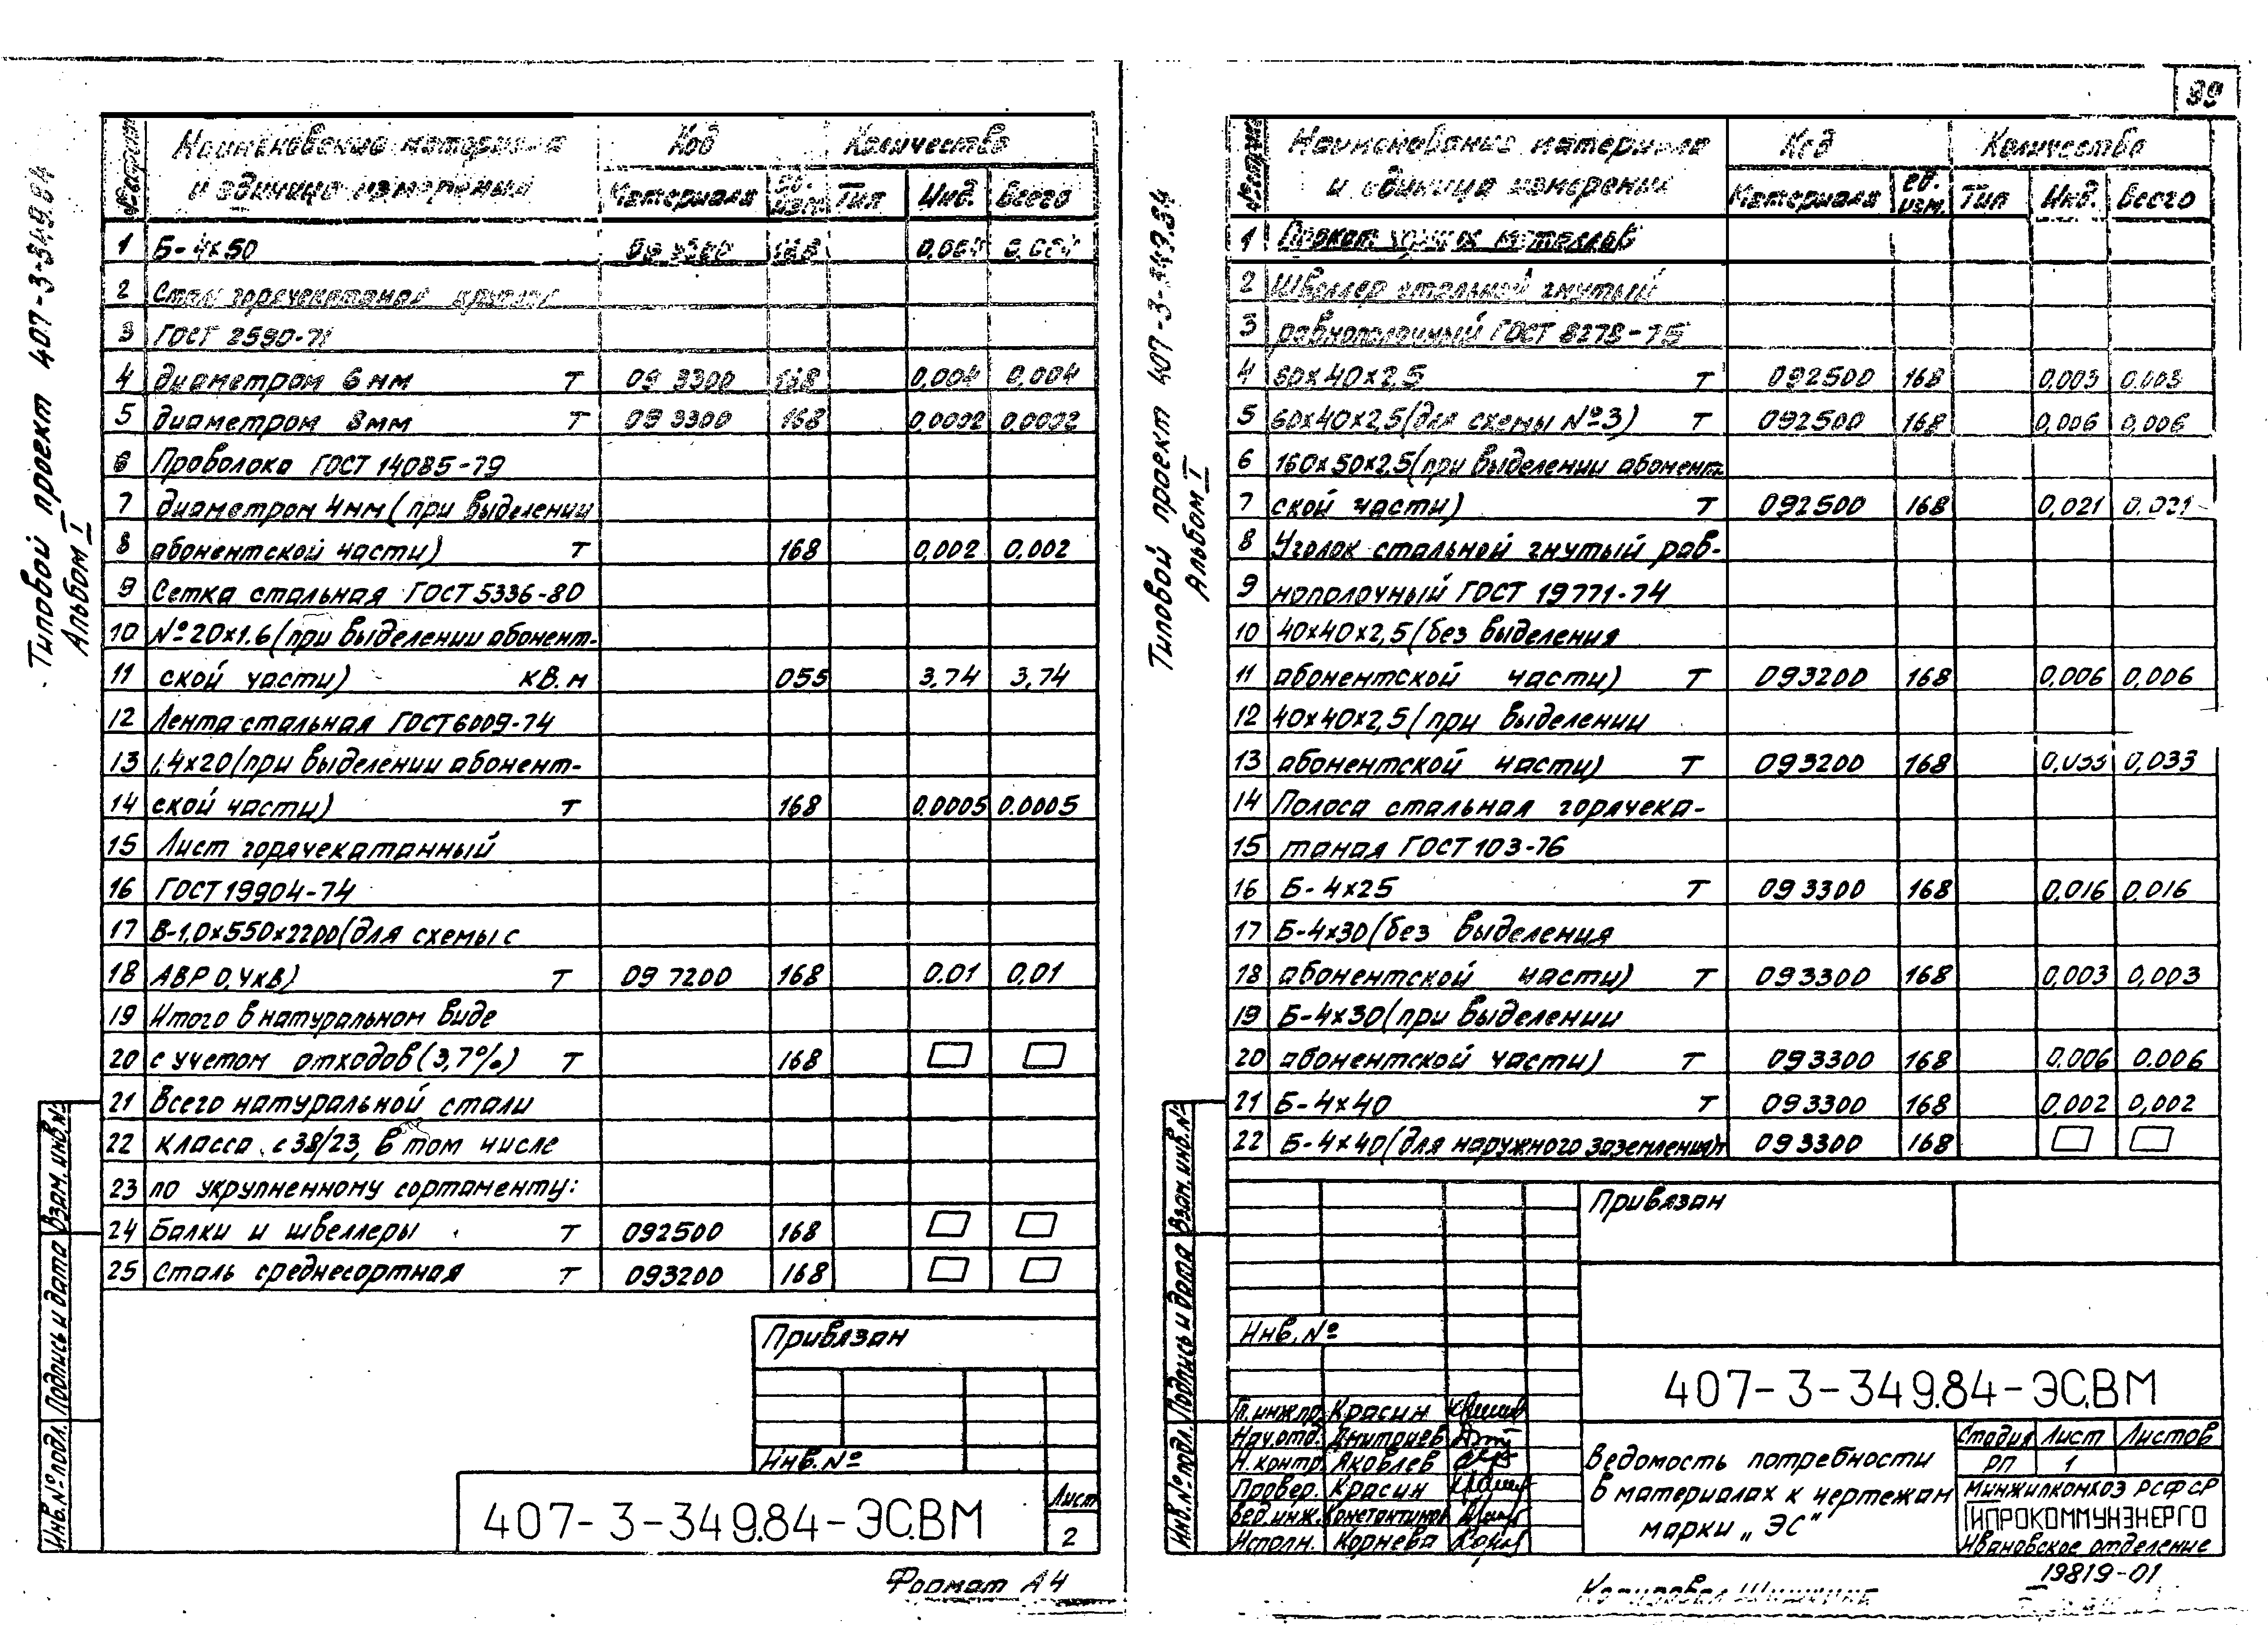 Типовой проект 407-3-349.84
Альбом I
№ строки Наименование материала Код Количество
и единица измерения материала ед. изм. Тип Инд. Всего
1 Б-4х50 168
2 Сталь горячекатаная круглая
3 ГОСТ 2590-71
4 диаметром 6 мм т 09 3300 168 0,004 0.004
5 диаметром 8мм т 09 3300 168 0,0002 0,0002
6 Проволока ГОСТ 14085-79
7 диаметром 4мм (при выделении
8 абонентской части) т 168 0,002 0,002
9 Сетка стальная ГОСТ 5336-80
10 №20х1.6 (при выделении абонент-
11 ской части) кв.м 055 3,74 3,74
12 Лента стальная ГОСТ 6009-74
13 1,4х20 (при выделении абонент-
14 ской части) т 168 0.0005 0.0005
15 Лист горячекатанный
16 ГОСТ 19904-74
17 В-1,0х550х2200 (для схемы с
18 АВР 0,4кВ) т 09 7200 168 0.01 0,01
19 Итого в натуральном виде
20 с учетом отходов (3,7%) т 168
21 Всего натуральной стали
22 класса с 38/23, в том числе
23 по укрупненному сортаменту:
24 Балки и швеллеры т 092500 168
25 Сталь среднесортная т 093200 168
Привязан
Инв.№
407-3-349.84-ЭС.ВМ
Лист
2
Инв.№ подл. Подпись и дата Взам.инв.№
Формат А4
99
Типовой проект 407-3-349.84
Альбом I
№ строки Наименование материала Код Количество
и единица измерения материала ед. изм. Тип Инд. Всего
1 Прокат черных металлов
2 Швеллер стальной гнутый
3 равнополочный ГОСТ 8278-75
4 80х40х2,5 т 092500 168 0,003 0.003
5 60х40х2,5 (для схемы №3) т 092500 168 0,006 0,006
6 160х50х2,5 (при выделении абонент
7 ской части) т 092500 168 0,021 0,021
8 Уголок стальной гнутый рав-
9 нополочный ГОСТ 19771-74
10 40х40х2,5 (без выделения
11 абонентской части) т 093200 168 0,006 0,006
12 40х40х2,5 (при выделении
13 абонентской части) т 093200 168 0,033 0,033
14 Полоса стальная горячека-
15 таная ГОСТ 103-76
16 Б-4х25 т 093300 168 0,016 0.016
17 Б-4х30 (без выделения
18 абонентской части) т 093300 168 0,003 0,003
19 Б-4х30 (при выделении
20 абонентской части) т 093300 168 0.006 0.006
21 Б-4х40 т 093300 168 0,002 0,002
22 Б-4х40 (для наружного заземления) т 093300 168
Привязан
Инв.№
407-3-349.84-ЭС.ВМ
Гл.инж.пр. Красин
Нач.отд. Дмитриев
Н.контр. Яковлев
Провер. Красин
Вед.инж. Константинов
Исполн. Корнева
Ведомость потребности
в материалах к чертежам
марки „ЭС"
Стадия Лист Листов
РП 1
Минжилкомхоз РСФСР
ГИПРОКОММУНЭНЕРГО
Ивановское отделение
Инв.№ подл. Подпись и дата Взам.инв.№
19819-01
Копировал